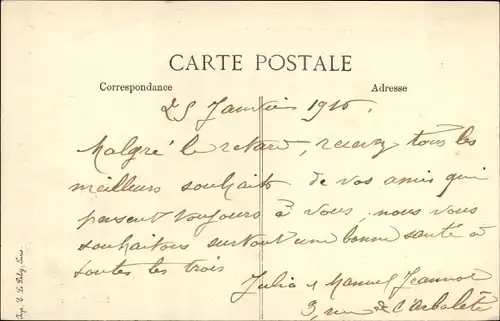 CARTE POSTALE
Correspondance Adresse
25 Janvier 1910.
Malgré le retard, recevez tous les
meilleurs souhaits de vos amis qui
pensent toujours à vous, nous vous
souhaitons surtout une bonne santé à
toutes les trois
Julia & Manuel
3, rue de l'Arbalète
Imp.